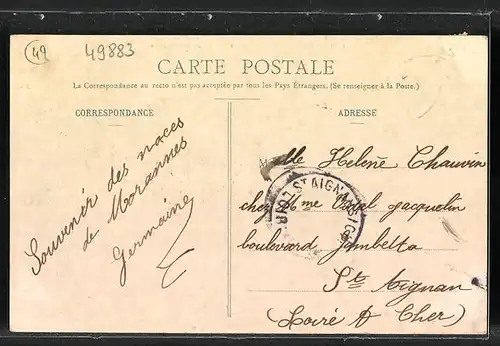 49
49883
CARTE POSTALE
La Correspondance au recto n'est pas acceptée par tous les Pays Étrangers. (Se renseigner à la Poste.)
CORRESPONDANCE
Souvenir des noces
de Morannes
Germaine
ADRESSE
Melle Helene Chauvin
chez Mme Jacquelin
boulevard Gambetta
St Aignan
(Loire & Cher)
ST AIGN